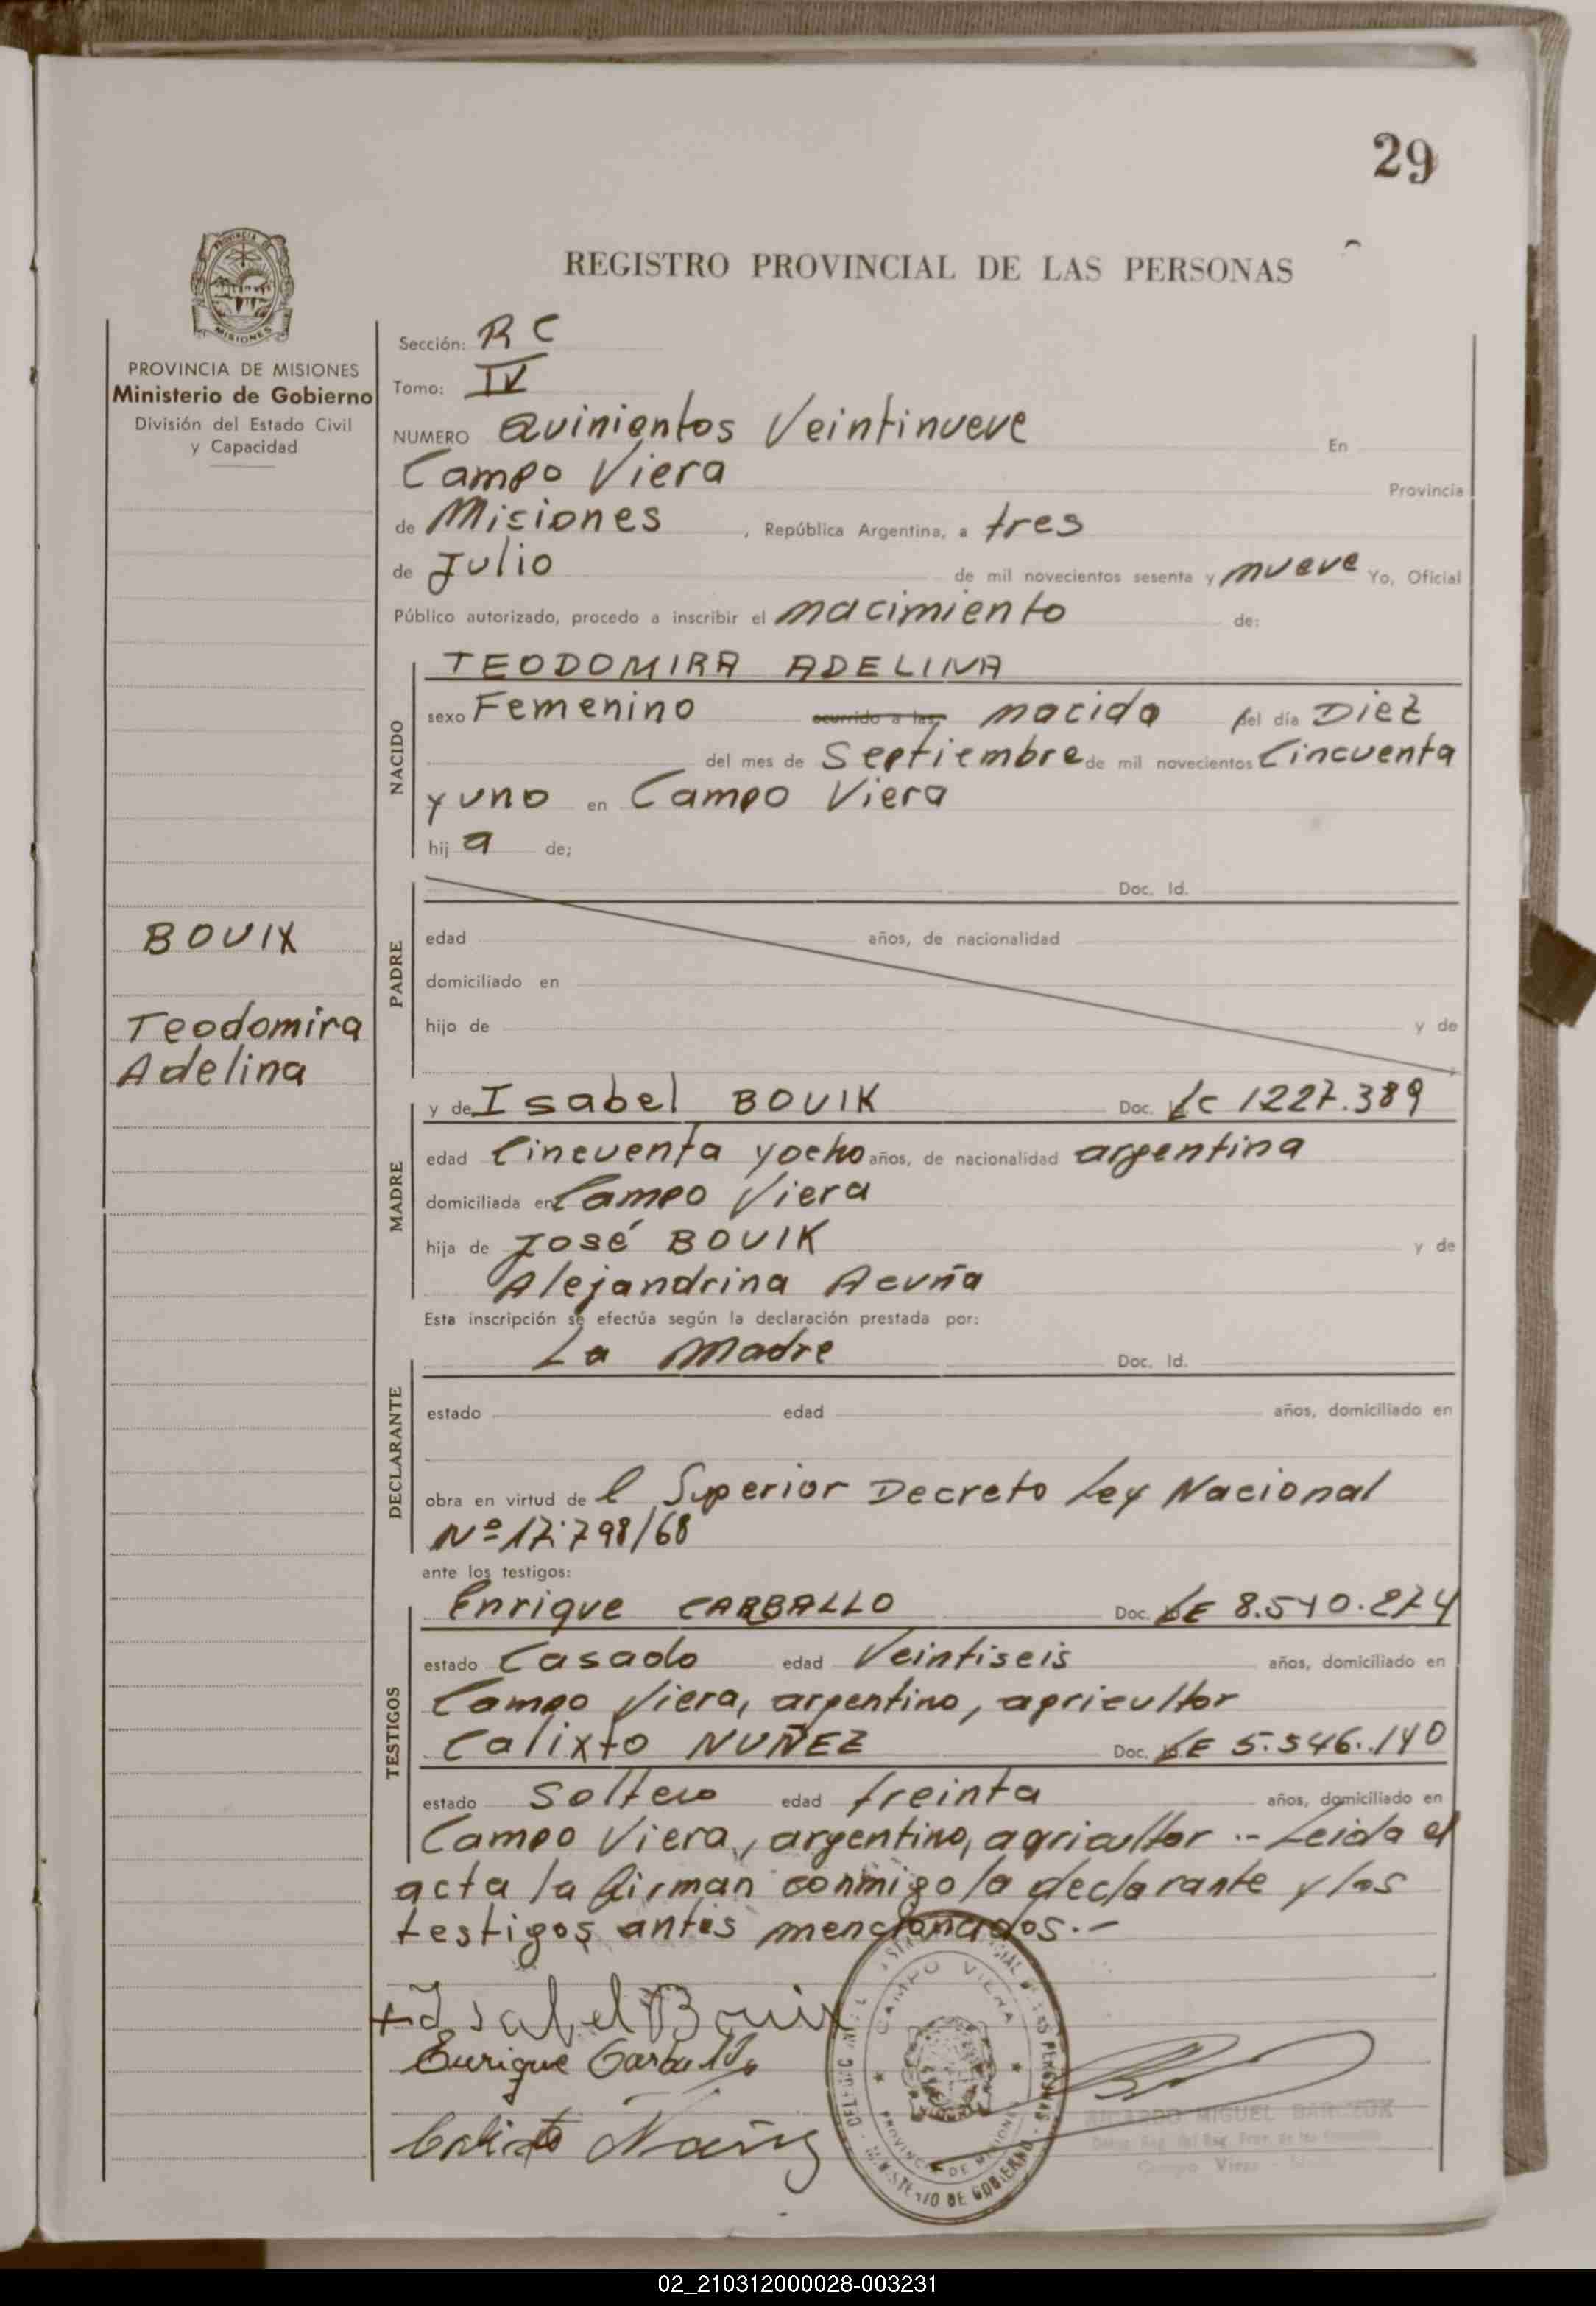 29
REGISTRO PROVINCIAL DE LAS PERSONAS
PROVINCIA DE MISIONES
Ministerio de Gobierno
División del Estado Civil
y Capacidad
BOUIX
Teodomira
Adelina
Sección: R C
Tomo: IV
NUMERO Quinientos Veintinueve En
Campo Viera Provincia
de Misiones, República Argentina, a tres
de Julio de mil novecientos sesenta y nueve Yo, Oficial
Público autorizado, procedo a inscribir el nacimiento de:
NACIDO
TEODOMIRA ADELINA
sexo Femenino ocurrido a las, nacida del día Diez
del mes de Septiembre de mil novecientos Cincuenta
y uno en Campo Viera
hij a de;
PADRE
Doc. Id.
edad años, de nacionalidad
domiciliado en
hijo de y de
MADRE
y de Isabel BOUIK Doc. LC 1227.389
edad Cincuenta y ocho años, de nacionalidad argentina
domiciliada en Campo Viera
hija de José BOUIK y de
Alejandrina Acuña
Esta inscripción se efectúa según la declaración prestada por:
DECLARANTE
La Madre Doc. Id.
estado edad años, domiciliado en
obra en virtud de l Superior Decreto Ley Nacional
Nº 17.798/68
ante los testigos:
TESTIGOS
Enrique CARBALLO Doc. LE 8.540.274
estado Casado edad Veintiseis años, domiciliado en
Campo Viera, argentino, agricultor
Calixto NUÑEZ Doc. LE 5.546.140
estado Soltero edad treinta años, domiciliado en
Campo Viera, argentino, agricultor .- Leida el
acta la firman conmigo la declarante y los
testigos antes mencionados.-
+ Isabel Bouix
Enrique Carballo
Calixto Nuñez
CAMPO VIERA
PROVINCIA DE MISIONES
MINISTERIO DE GOBIERNO
MIGUEL
Campo Viera
02_210312000028-003231